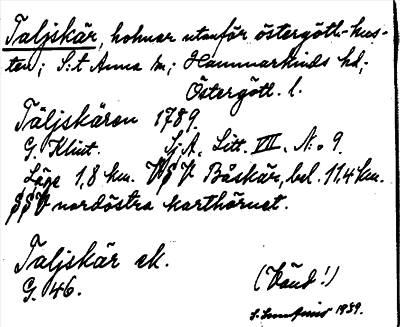 Taljskär, holmar utanför östergötl-kus-
ten; S:t Anna sn; Hammarkinds hd;
Östergötl. l.
Täljskären 1789.
G. Klint. Sj.A. Litt. VII. N:o 9.
Läge 1,8 km. VSV Båskär, bel. 11.4 km.
SSV nordöstra karthörnet.
Taljskär ek.
G. 46.
(Vänd!)
1939.